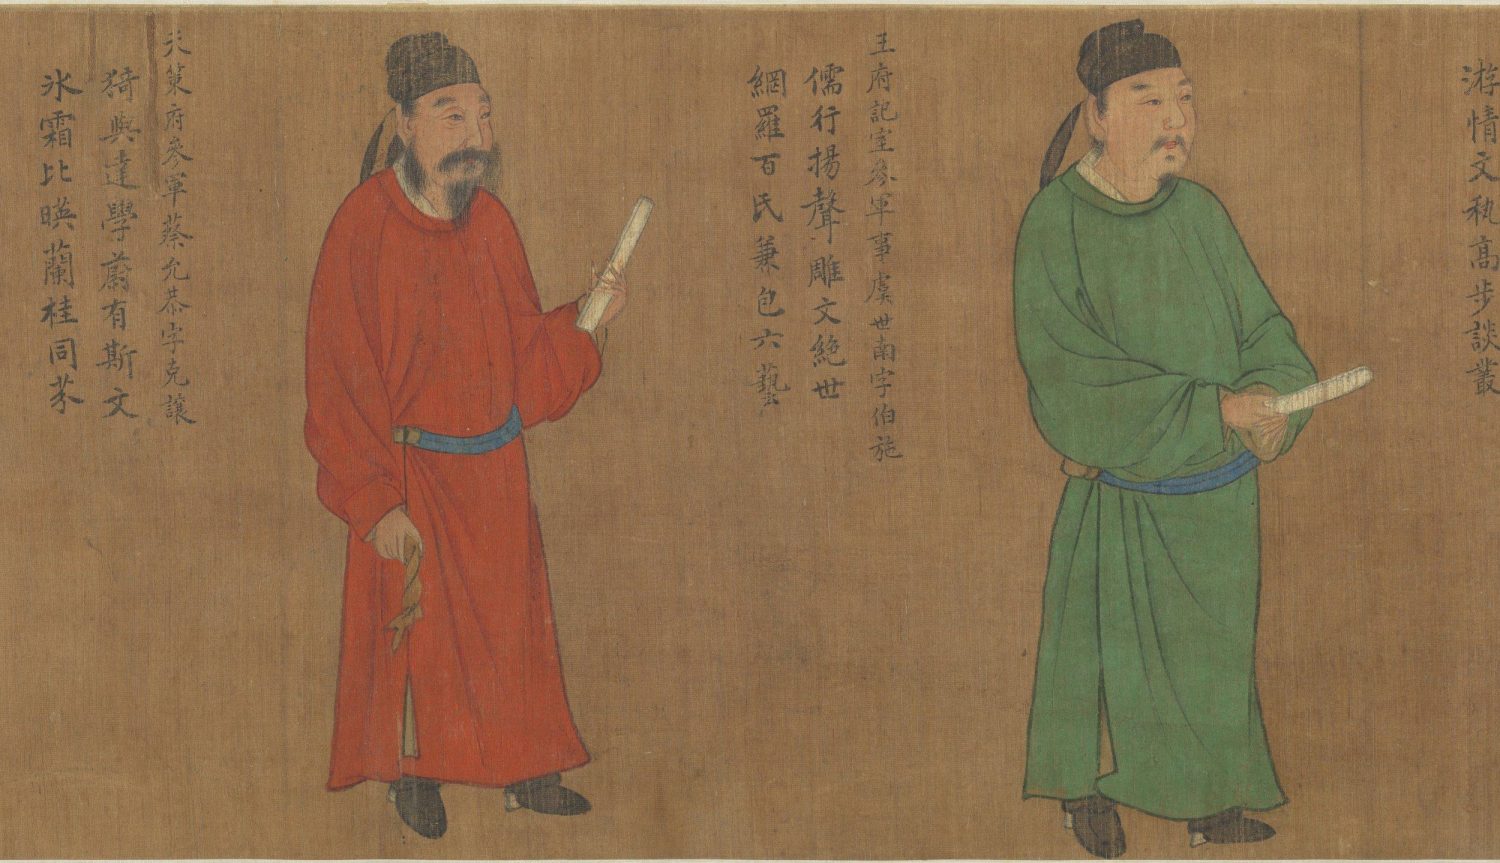 游情文秇高步談叢
王府記室叅軍事虞世南字伯施
儒行揚聲雕文絶世
網羅百氏兼包六藝
天策府叅軍蔡允恭字克讓
猗與達學蔚有斯文
氷霜比暎蘭桂同芬